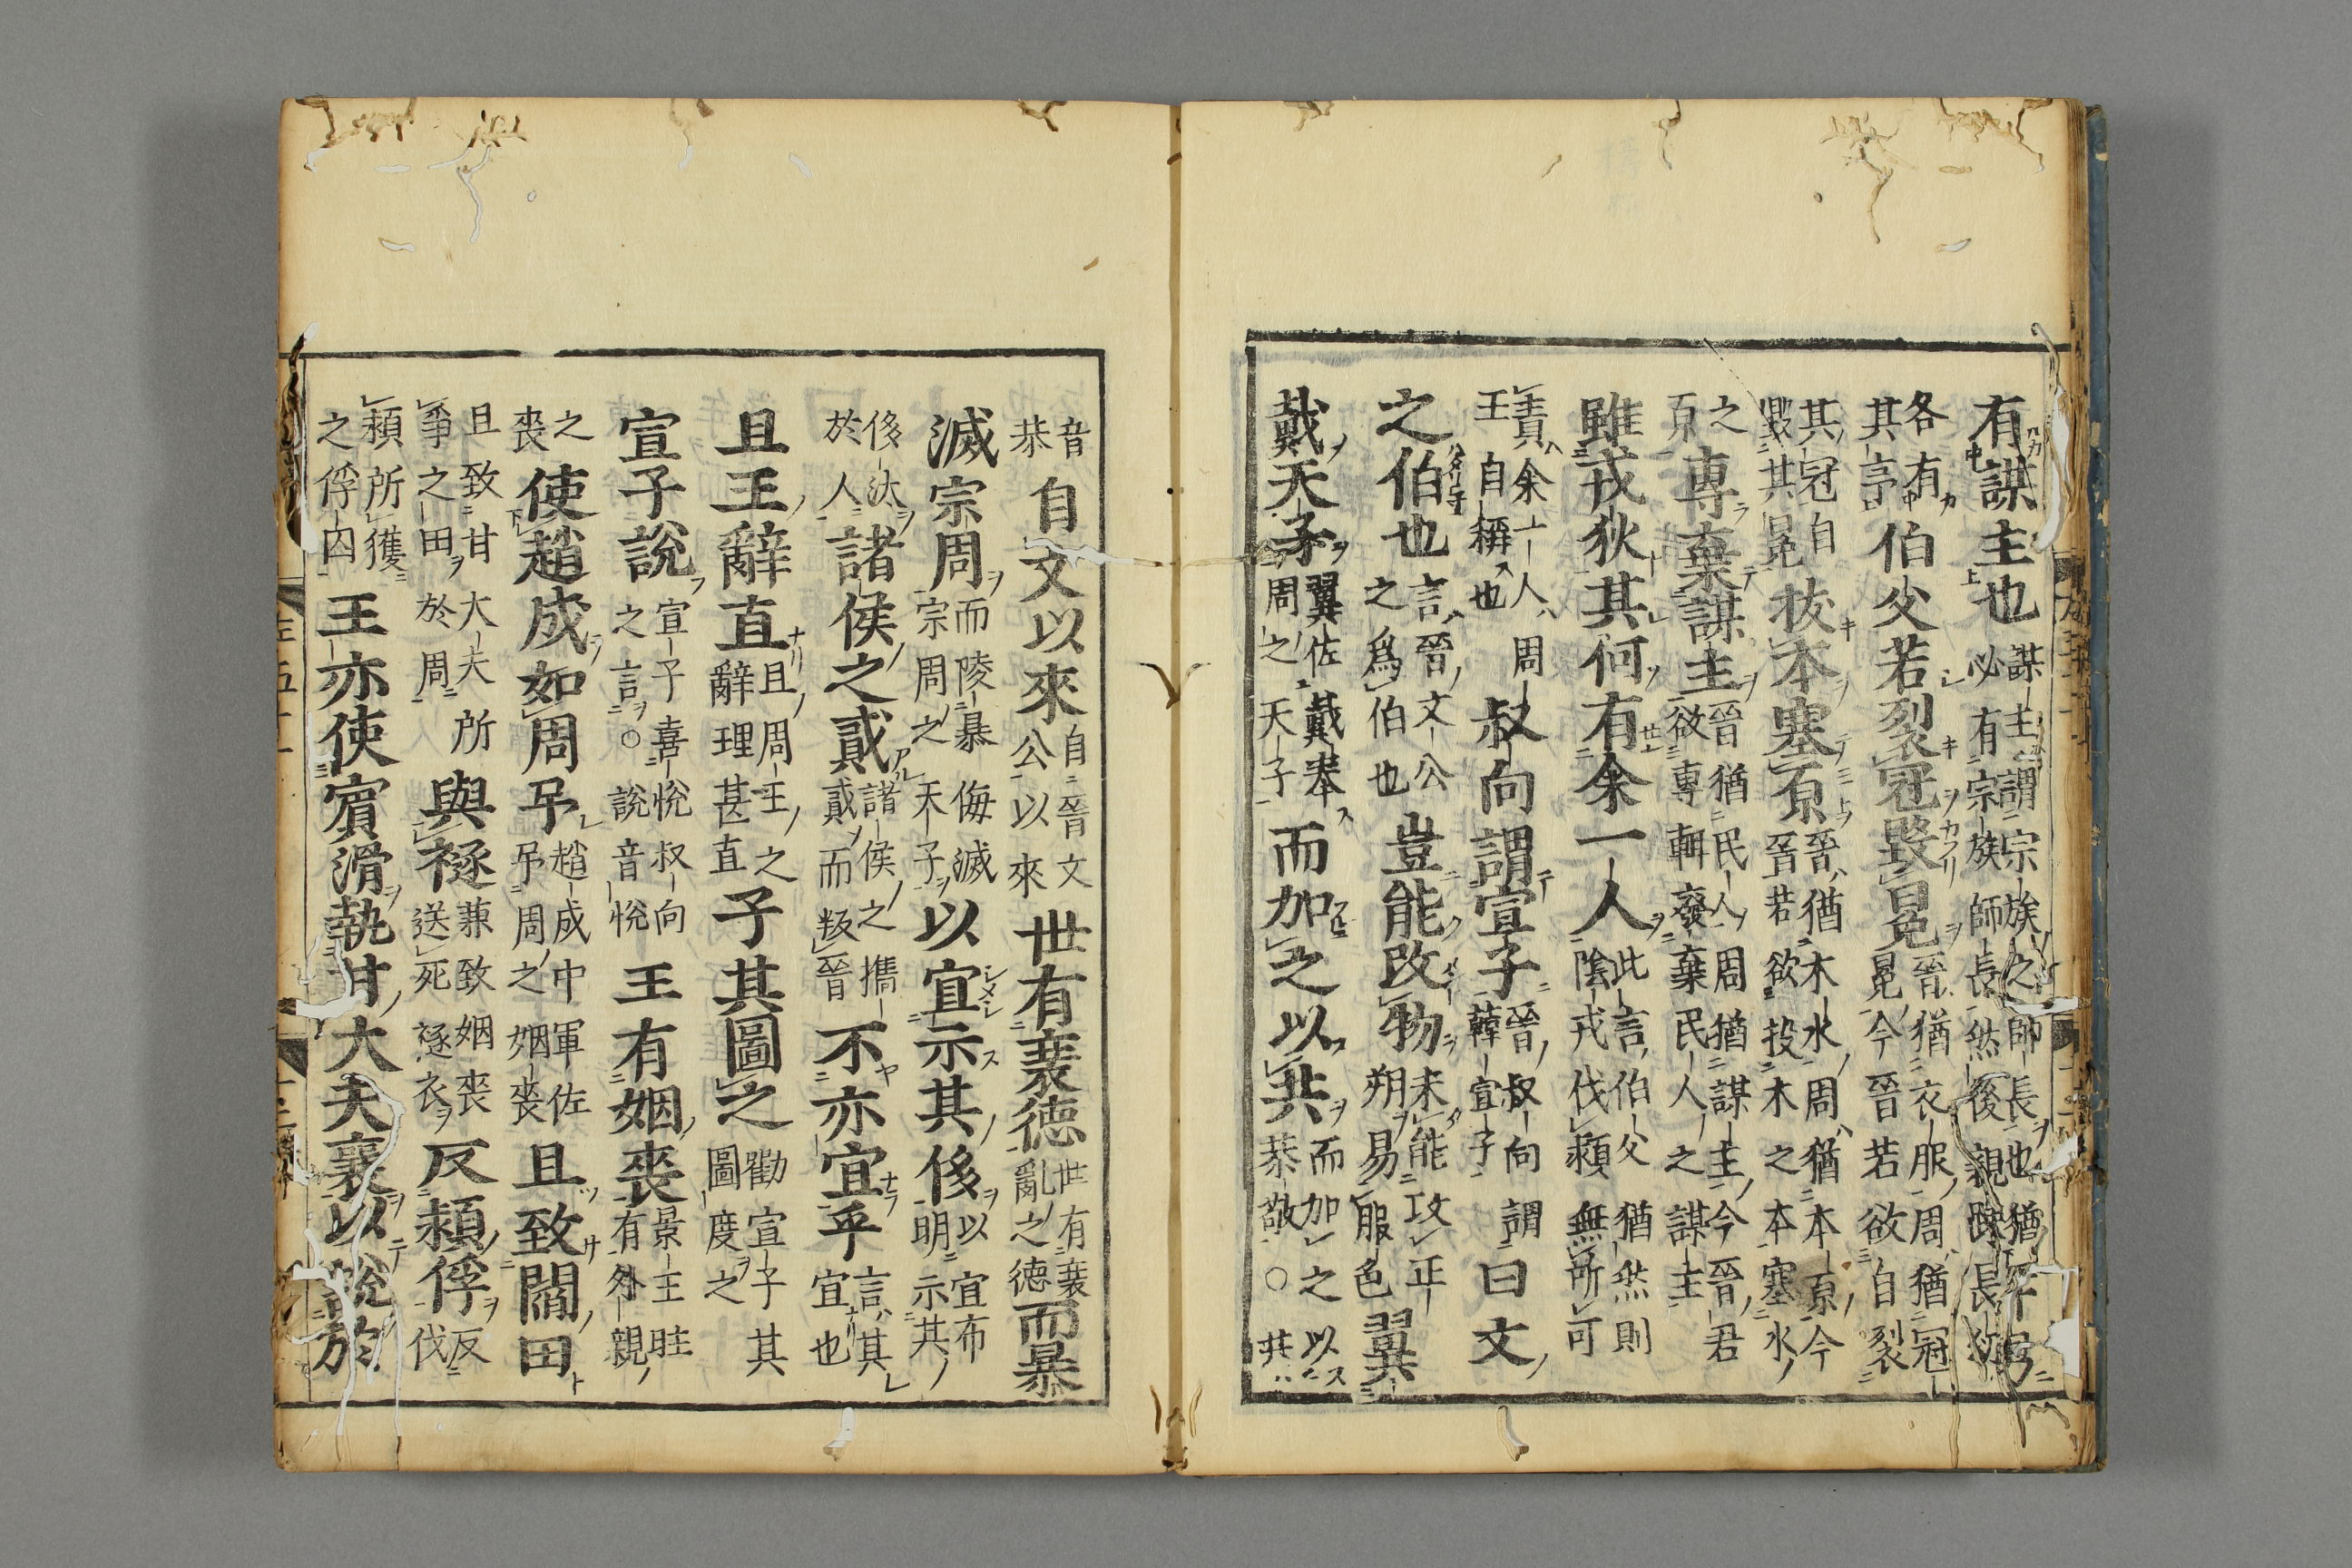 有謀主也謀主謂宗族之師長也猶
必有宗族師長然後親疎長
各有
其亨伯父若裂冠毀冕晉猶衣服周猶冠
冕今晉若欲自裂
其冠自
毀其冕抜本塞原晉猶木水周猶本原今
晉若欲投木之本塞水
之
原專棄謀主晉猶民人周猶謀主今晉君
欲專輙廢棄民人之謀主
雖戎狄其何有余一人此言伯父猶然則
陰戎伐潁無所可
責余一人周
王自稱也叔向謂宣子晉叔向謂
韓宣子曰文
之伯也言晉文公
之爲伯也豈能改物未能攻正
朔易服色翼
戴天子翼佐戴奉
周之天子而加之以共而加之以
恭敬〇共
音
恭自文以來自晉文
公以來世有衰德世有衰
亂之德而暴
滅宗周而陵暴侮滅
宗周之天子以宣示其侈以宣布
明示其
侈汰
於人諸侯之貳諸侯之攜
貳而叛晉不亦宜乎言其
宜也
且王辭直且周王之
辭理甚直子其圖之勸宣子其
圖度之
宣子說宣子喜悅叔向
之言〇說音悅王有姻喪景王時
有外親
之
喪使趙成如周弔趙成中軍佐
弔周之姻喪且致閻田
且致甘大夫所
爭之田於周與襚兼致姻喪
送死襚衣反潁俘反
伐
潁所獲
之俘囚王亦使賓滑執甘大夫襄以說於